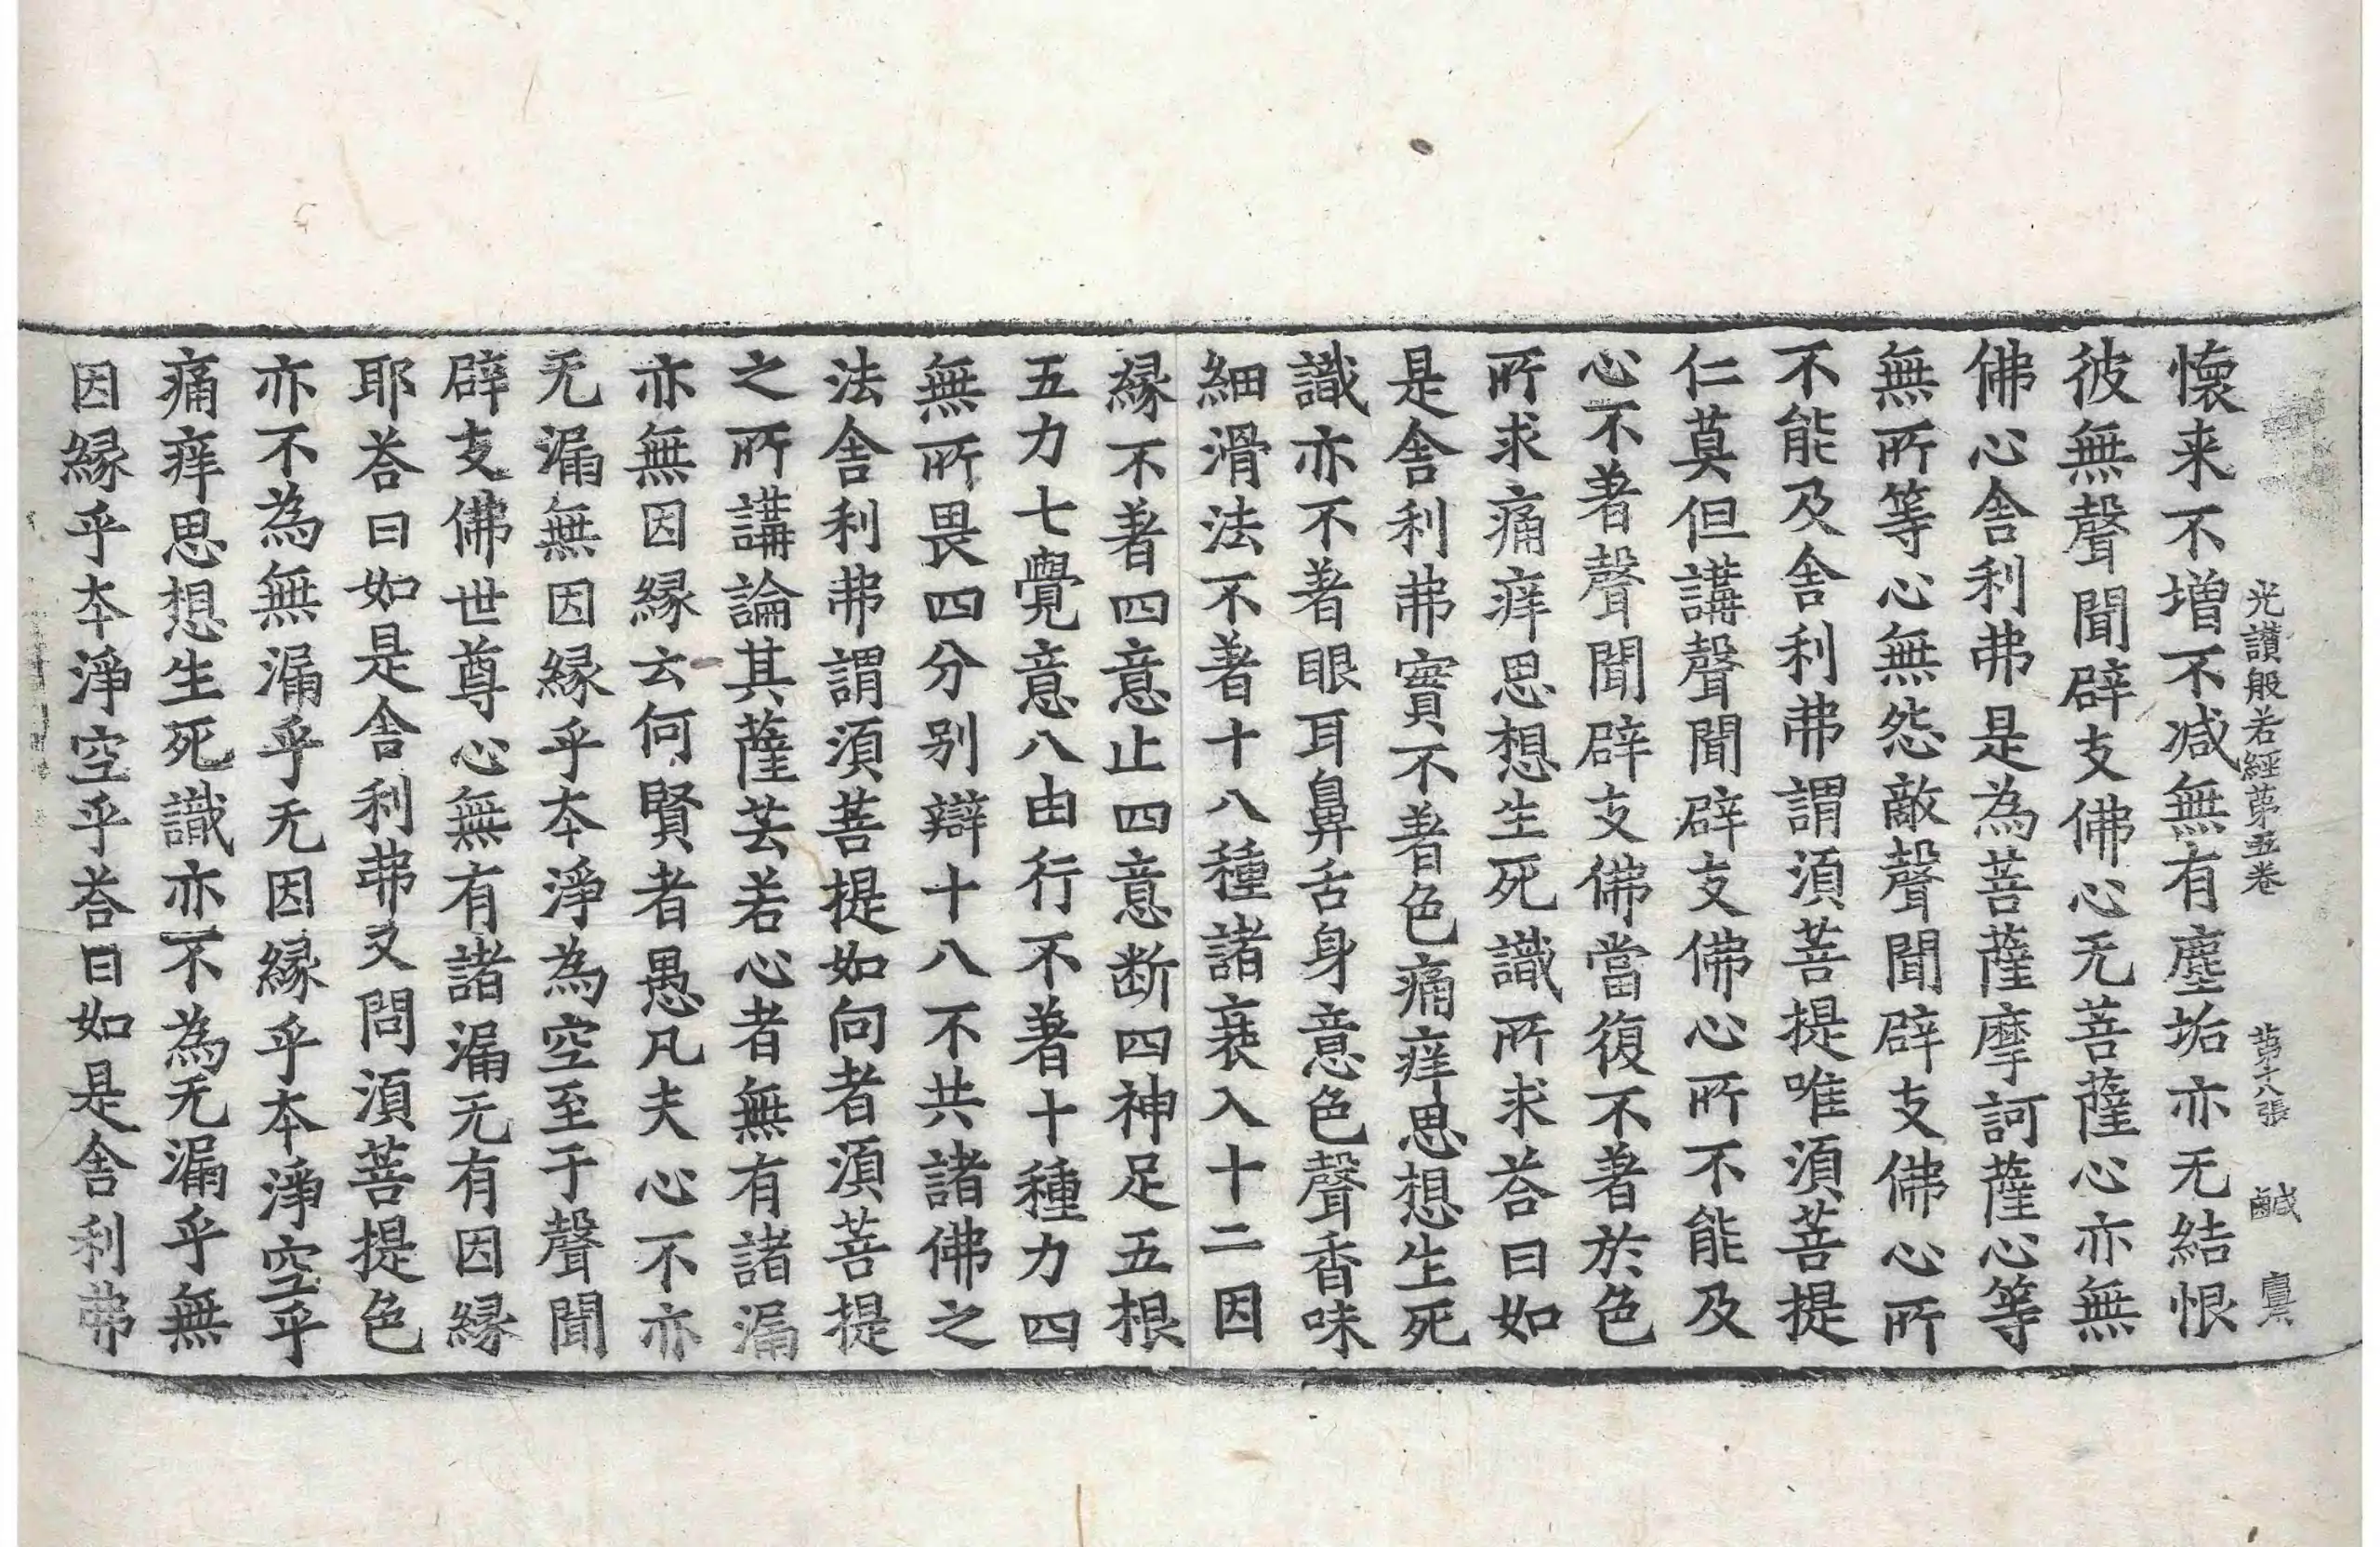 光讃般若經苐五卷 苐十八張 鹹
懷来不增不减無有塵垢亦无結恨
彼無聲聞辟支佛心无菩薩心亦無
佛心舎利弗是為菩薩摩訶薩心等
無所等心無怨敵聲聞辟支佛心所
不能及舎利弗謂湏菩提唯湏菩提
仁莫但講聲聞辟支佛心所不能及
心不著聲聞辟支佛當復不著於色
所求痛痒思想生死識所求荅曰如
是舎利弗實不著色痛痒思想生死
識亦不著眼耳鼻舌身意色聲香味
細滑法不著十八種諸衰入十二因
縁不著四意止四意断四神足五根
五力七覺意八由行不著十種力四
無所畏四分别辯十八不共諸佛之
法舎利弗謂湏菩提如向者湏菩提
之所講論其薩芸若心者無有諸漏
亦無因縁云何賢者愚凡夫心不亦
无漏無因縁乎夲淨為空至于聲聞
辟支佛世尊心無有諸漏无有因縁
耶荅曰如是舎利弗又問湏菩提色
亦不為無漏乎无因縁乎夲淨空乎
痛痒思想生死識亦不為无漏乎無
因縁乎夲淨空乎荅曰如是舎利弗